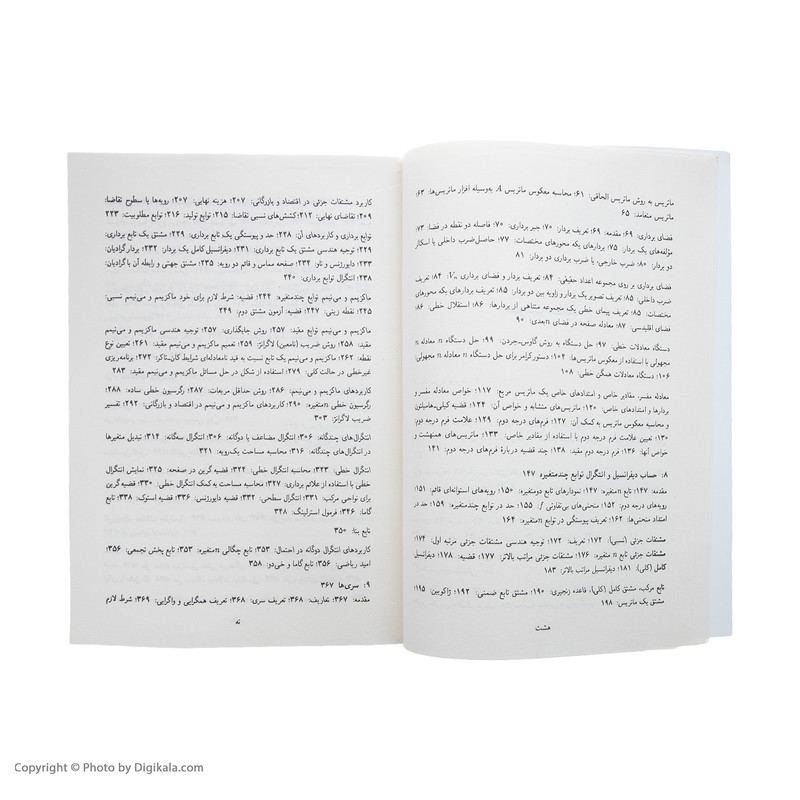 ماتریس به روش ماتریس الحاقی: ۶۱؛ محاسبه معکوس ماتریس A به‌وسیله افزار ماتریس‌ها: ۶۳؛
ماتریس متعامد: ۶۵
فضای برداری: ۶۹؛ مقدمه: ۶۹؛ تعریف بردار: ۷۰؛ جبر برداری: ۷۰؛ فاصله دو نقطه در فضا: ۷۳؛
مؤلفه‌های یک بردار: ۷۵؛ بردارهای یکه محورهای مختصات: ۷۷؛ حاصل‌ضرب داخلی یا اسکالر
دو بردار: ۸۰؛ ضرب خارجی، یا ضرب برداری دو بردار: ۸۱
فضای برداری بر روی مجموعه اعداد حقیقی: ۸۴؛ تعریف بردار و فضای برداری Vn: ۸۴؛ تعریف
ضرب داخلی: ۸۵؛ تعریف تصویر یک بردار و زاویه بین دو بردار: ۸۵؛ تعریف بردارهای یکه محورهای
مختصات: ۸۵؛ تعریف پیمای خطی یک مجموعه متناهی از بردارها: ۸۶؛ استقلال خطی: ۸۶؛
فضای اقلیدسی: ۸۷؛ معادله صفحه در فضای nبعدی: ۹۰
دستگاه معادلات خطی: ۹۷؛ حل دستگاه به روش گاوس-جردن: ۹۹؛ حل دستگاه n معادله n
مجهولی با استفاده از معکوس ماتریس‌ها: ۱۰۴؛ دستور کرامر برای حل دستگاه n معادله n مجهولی:
۱۰۶؛ دستگاه معادلات همگن خطی: ۱۰۸
معادله مفسر، مقادیر خاص و امتدادهای خاص یک ماتریس مربع: ۱۱۷؛ خواص معادله مفسر و
بردارها و امتدادهای خاص: ۱۲۰؛ ماتریس‌های متشابه و خواص آن: ۱۲۴؛ قضیه کیلی-هامیلتون
و محاسبه معکوس ماتریس به کمک آن: ۱۲۷؛ فرم‌های درجه دوم: ۱۲۹؛ علامت فرم درجه دوم:
۱۳۰؛ تعیین علامت فرم درجه دوم با استفاده از مقادیر خاص: ۱۳۳؛ ماتریس‌های همنهشت و
خواص آنها: ۱۳۶؛ فرم درجه دوم مقید: ۱۳۸؛ چند قضیه دربارهٔ فرم‌های درجه دوم: ۱۴۱
۸: حساب دیفرانسیل و انتگرال توابع چندمتغیره ۱۴۷
مقدمه: ۱۴۷؛ تابع nمتغیره: ۱۴۷؛ نمودارهای تابع دومتغیره: ۱۵۰؛ رویه‌های استوانه‌ای قائم: ۱۵۱؛
رویه‌های درجه دوم: ۱۵۲؛ منحنی‌های بی‌تفاوتی f: ۱۵۵؛ حد در توابع چندمتغیره: ۱۵۹؛ حد در
امتداد منحنی‌ها: ۱۶۲؛ تعریف پیوستگی در توابع nمتغیره: ۱۶۴
مشتقات جزئی (نسبی): ۱۷۲؛ تعریف: ۱۷۲؛ توجیه هندسی مشتقات جزئی مرتبه اول: ۱۷۴؛
مشتقات جزئی تابع n متغیره: ۱۷۶؛ مشتقات جزئی مراتب بالاتر: ۱۷۷؛ قضیه: ۱۷۸؛ دیفرانسیل
کامل (کلی): ۱۸۱؛ دیفرانسیل مراتب بالاتر: ۱۸۳
تابع مرکب، مشتق کامل (کلی)، قاعده زنجیری: ۱۹۰؛ مشتق تابع ضمنی: ۱۹۲؛ ژاکوبین: ۱۹۵؛
مشتق یک ماتریس: ۱۹۸
هشت
کاربرد مشتقات جزئی در اقتصاد و بازرگانی: ۲۰۷؛ هزینه نهایی: ۲۰۷؛ رویه‌ها یا سطوح تقاضا:
۲۰۹؛ تقاضای نهایی: ۲۱۲؛ کشش‌های نسبی تقاضا: ۲۱۵؛ توابع تولید: ۲۱۶؛ توابع مطلوبیت: ۲۲۳
توابع برداری و کاربردهای آن: ۲۲۸؛ حد و پیوستگی یک تابع برداری: ۲۲۹؛ مشتق یک تابع برداری:
۲۲۹؛ توجیه هندسی مشتق یک تابع برداری: ۲۳۱؛ دیفرانسیل کامل یک بردار: ۲۳۲؛ بردار گرادیان:
۲۳۳؛ دایورژنس و تاو: ۲۳۴؛ صفحه مماس و قائم دو رویه: ۲۳۵؛ مشتق جهتی و رابطه آن با گرادیان:
۲۳۸؛ انتگرال توابع برداری: ۲۴۰
ماکزیمم و می‌نیمم توابع چندمتغیره: ۲۴۴؛ قضیه: شرط لازم برای خود ماکزیمم و می‌نیمم نسبی:
۲۴۵؛ نقطه زینی: ۲۴۷؛ قضیه: آزمون مشتق دوم: ۲۴۹
ماکزیمم و می‌نیمم توابع مقید: ۲۵۷؛ روش جایگذاری: ۲۵۷؛ توجیه هندسی ماکزیمم و می‌نیمم
مقید: ۲۵۸؛ روش ضریب (نامعین) لاگرانژ: ۲۵۹؛ تعمیم ماکزیمم و می‌نیمم مقید: ۲۶۱؛ تعیین نوع
نقطه: ۲۶۲؛ ماکزیمم و می‌نیمم یک تابع نسبت به قید نامعادله‌ای (شرایط کان‌تاکر): ۲۷۲؛ برنامه‌ریزی
غیرخطی در حالت کلی: ۲۷۹؛ استفاده از شکل در حل مسائل ماکزیمم و می‌نیمم مقید: ۲۸۳
کاربردهای ماکزیمم و می‌نیمم: ۲۸۶؛ روش حداقل مربعات: ۲۸۷؛ رگرسیون خطی ساده: ۲۸۸؛
رگرسیون خطی nمتغیره: ۲۹۰؛ کاربردهای ماکزیمم و می‌نیمم در اقتصاد و بازرگانی: ۲۹۲؛ تفسیر
ضریب لاگرانژ: ۳۰۳
انتگرال‌های چندگانه: ۳۰۶؛ انتگرال مضاعف یا دوگانه: ۳۰۶؛ انتگرال سه‌گانه: ۳۱۴؛ تبدیل متغیرها
در انتگرال‌های چندگانه: ۳۱۶؛ محاسبه مساحت یک‌رویه: ۳۲۱
انتگرال خطی: ۳۲۳؛ محاسبه انتگرال خطی: ۳۲۴؛ قضیه گرین در صفحه: ۳۲۵؛ نمایش انتگرال
خطی با استفاده از علائم برداری: ۳۲۷؛ محاسبه مساحت به کمک انتگرال خطی: ۳۳۰؛ قضیه گرین
برای نواحی مرکب: ۳۳۱؛ انتگرال سطحی: ۳۳۲؛ قضیه دایورژنس: ۳۳۶؛ قضیه استوک: ۳۳۸؛ تابع
گاما: ۳۴۶؛ فرمول استرلینگ: ۳۴۸
تابع بتا: ۳۵۰
کاربردهای انتگرال دوگانه در احتمال: ۳۵۳؛ تابع چگالی nمتغیره: ۳۵۳؛ تابع پخش تجمعی: ۳۵۶؛
امید ریاضی: ۳۵۶؛ تابع گاما و خی‌دو: ۳۵۸
۹: سری‌ها ۳۶۷
مقدمه: ۳۶۷؛ تعاریف: ۳۶۸؛ تعریف سری: ۳۶۸؛ تعریف همگرایی و واگرایی: ۳۶۹؛ شرط لازم
نه
Copyright © Photo by Digikala.com